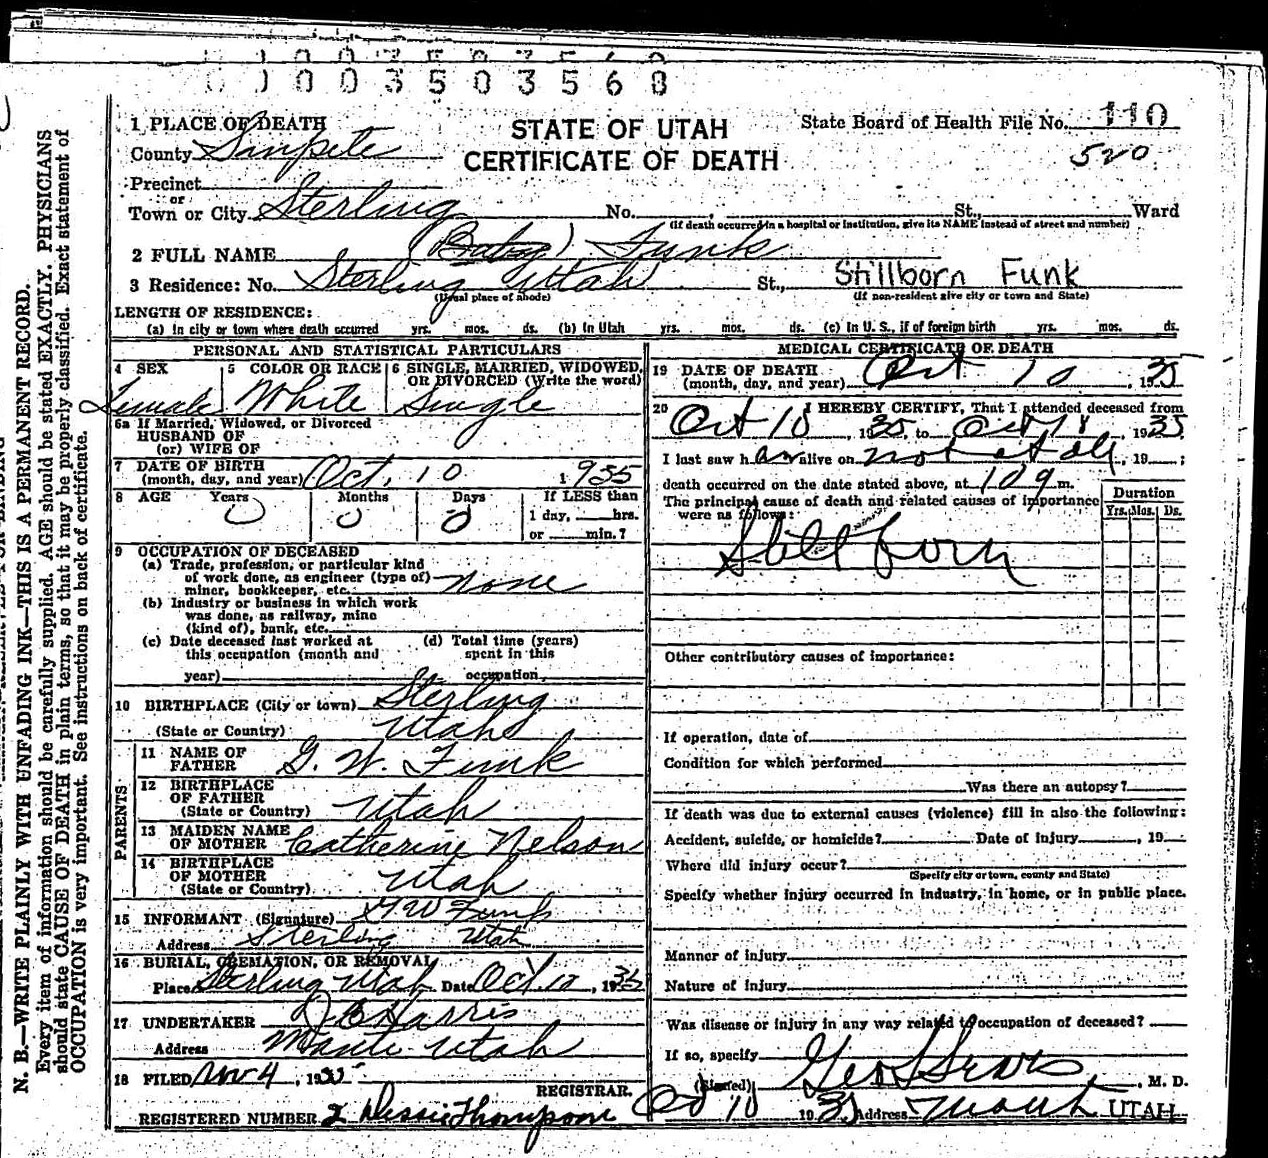 1003503568
1 PLACE OF DEATH
STATE OF UTAH
State Board of Health File No. 110
County Sanpete
CERTIFICATE OF DEATH
520
Precinct
or
Town or City Sterling No. , St., Ward
(If death occurred in a hospital or institution, give its NAME instead of street and number)
2 FULL NAME (Baby) Funk
3 Residence: No. Sterling Utah St., Stillborn Funk
(Usual place of abode) (If non-resident give city or town and State)
LENGTH OF RESIDENCE:
(a) in city or town where death occurred yrs. mos. ds. (b) In Utah yrs. mos. ds. (c) In U. S., if of foreign birth yrs. mos. ds.
PERSONAL AND STATISTICAL PARTICULARS
4 SEX Female
5 COLOR OR RACE White
6 SINGLE, MARRIED, WIDOWED, OR DIVORCED (Write the word) Single
6a If Married, Widowed, or Divorced
HUSBAND OF
(or) WIFE OF
7 DATE OF BIRTH
(month, day, and year) Oct. 10 1935
8 AGE Years 0 Months 0 Days 0 If LESS than
1 day, hrs.
or min.?
9 OCCUPATION OF DECEASED
(a) Trade, profession, or particular kind
of work done, as engineer (type of)
miner, bookkeeper, etc. none
(b) Industry or business in which work
was done, as railway, mine
(kind of), bank, etc.
(c) Date deceased last worked at
this occupation (month and
year)
(d) Total time (years)
spent in this
occupation
10 BIRTHPLACE (City or town) Sterling
(State or Country) Utah
PARENTS
11 NAME OF
FATHER G. W. Funk
12 BIRTHPLACE
OF FATHER
(State or Country) Utah
13 MAIDEN NAME
OF MOTHER Catherine Nelson
14 BIRTHPLACE
OF MOTHER
(State or Country) Utah
15 INFORMANT (Signature) G W Funk
Address Sterling Utah
16 BURIAL, CREMATION, OR REMOVAL
Place Sterling Utah Date Oct 12, 1935
17 UNDERTAKER Harris
Address Manti Utah
18 FILED Nov 4, 1935
REGISTRAR.
REGISTERED NUMBER 2 Dessie Thompson
MEDICAL CERTIFICATE OF DEATH
19 DATE OF DEATH
(month, day, and year) Oct 10, 1935
20 I HEREBY CERTIFY, That I attended deceased from
Oct 10, 1935, to Oct 18, 1935
I last saw her alive on not at all, 19 ;
death occurred on the date stated above, at 10 m.
The principal cause of death and related causes of importance
were as follows:
Duration
Yrs. Mos. Ds.
Still born
Other contributory causes of importance:
If operation, date of
Condition for which performed
Was there an autopsy?
If death was due to external causes (violence) fill in also the following:
Accident, suicide, or homicide? Date of injury , 19
Where did injury occur?
(Specify city or town, county and State)
Specify whether injury occurred in industry, in home, or in public place.
Manner of injury
Nature of injury
Was disease or injury in any way related to occupation of deceased?
If so, specify
(Signed) Geo L Sears, M. D.
Oct 10 1935 Address Manti UTAH
N. B.—WRITE PLAINLY WITH UNFADING INK—THIS IS A PERMANENT RECORD.
Every item of information should be carefully supplied. AGE should be stated EXACTLY. PHYSICIANS
should state CAUSE OF DEATH in plain terms, so that it may be properly classified. Exact statement of
OCCUPATION is very important. See instructions on back of certificate.